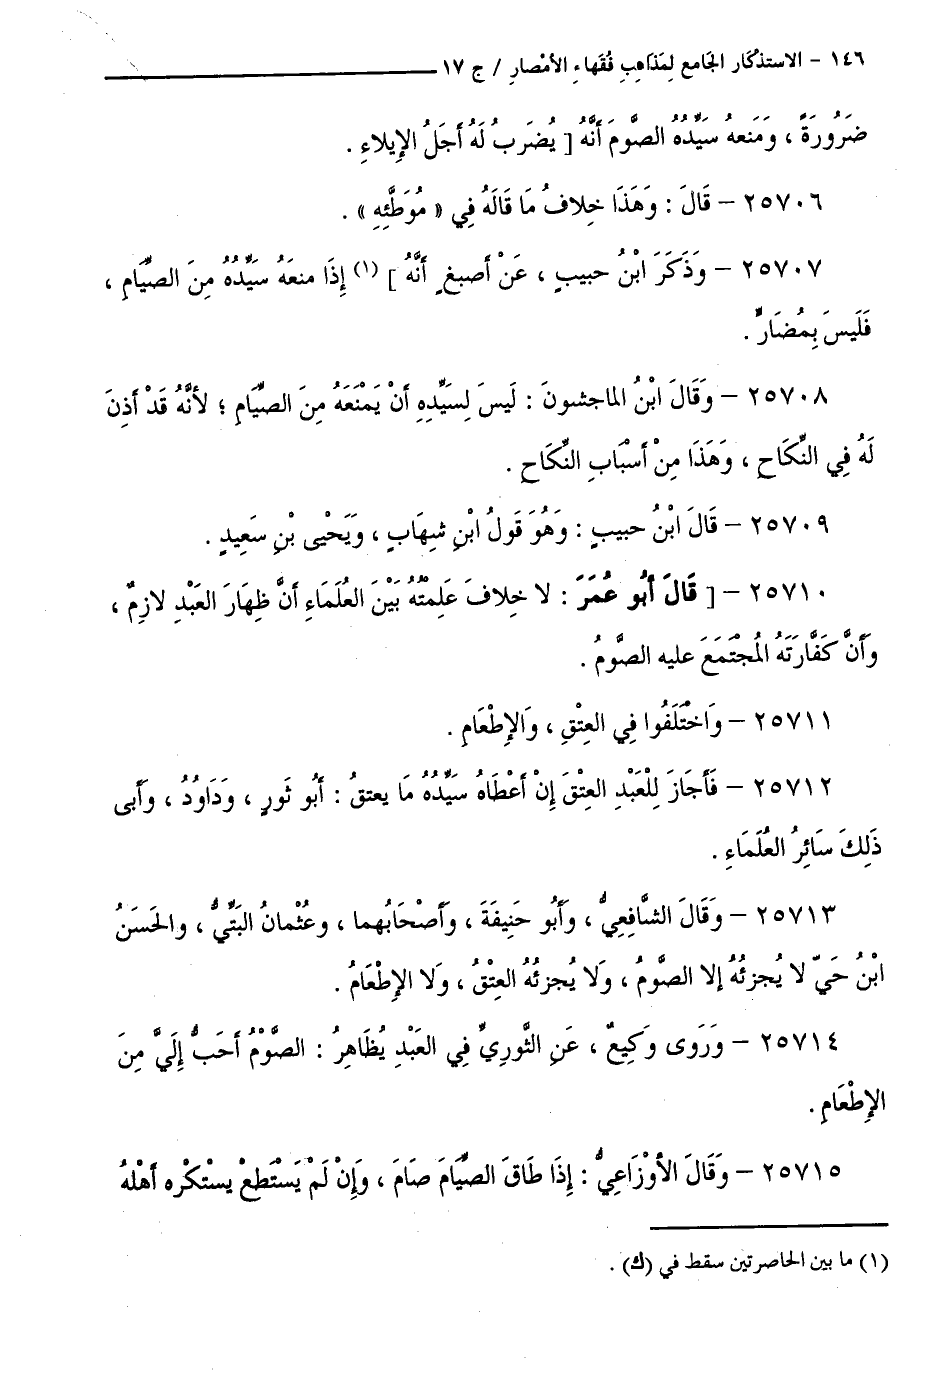 ١٤٦ - الاستذكار الجامع لمذاهب فقهاء الأمصار / ج ١٧
ضَرُورَةً ، وَمَنعهُ سَيِّدُهُ الصَّومَ أَنَّهُ [ يُضرَبُ لَهُ أَجَلُ الإِيلاءِ .
٢٥٧٠٦ - قَالَ : وَهَذَا خِلافُ مَا قَالَهُ فِي « مُوَطَّئِهِ » .
٢٥٧٠٧ - وَذَكَرَ ابْنُ حبيبٍ ، عَنْ أصبغٍ أَنَّهُ ] (١) إِذَا منعَهُ سَيِّدُهُ مِنَ الصِّيَامِ ،
فَلَيسَ بِمُضَارٍّ .
٢٥٧٠٨ - وَقَالَ ابْنُ الماجشونَ : لَيسَ لِسَيِّدِهِ أَنْ يَمْنَعَهُ مِنَ الصِّيَامِ ؛ لأنَّهُ قَدْ أذِنَ
لَهُ فِي النِّكَاحِ ، وَهَذَا مِنْ أَسْبَابِ النِّكَاحِ .
٢٥٧٠٩ - قَالَ ابْنُ حبيبٍ : وَهُوَ قَولُ ابْنِ شِهَابٍ ، وَيَحْيى بْنِ سَعِيدٍ .
٢٥٧١٠ - [ قَالَ أَبُو عُمَرَ : لا خِلافَ عَلِمْتُهُ بَيْنَ العُلَمَاءِ أنَّ ظِهَارَ العَبْدِ لازِمٌ ،
وَأَنَّ كَفَّارَتَهُ المُجْتَمَعَ عليه الصَّومُ .
٢٥٧١١ - وَاخْتَلَفُوا فِي العِتْقِ ، وَالإِطعَامِ .
٢٥٧١٢ - فَأَجَازَ لِلْعَبْدِ العِتْقَ إِنْ أَعْطَاهُ سَيِّدُهُ مَا يعتقُ : أَبُو ثَورٍ ، وَدَاوُدُ ، وَأَبى
ذَلِكَ سَائِرُ العُلَمَاءِ .
٢٥٧١٣ - وَقَالَ الشَّافِعِيُّ ، وَأَبُو حَنِيفَةَ ، وَأَصْحَابُهما ، وعُثْمانُ البَتِّيُّ ، والحَسَنُ
ابْنُ حَيّ لا يُجزئُهُ إلا الصَّومُ ، وَلا يُجزئُهُ العِتْقُ ، وَلا الإِطْعَامُ .
٢٥٧١٤ - وَرَوَى وَكِيعٌ ، عَنِ الثَّورِيِّ فِي العَبْدِ يُظَاهِرُ : الصَّوْمُ أَحَبُّ إِلَيَّ مِنَ
الإِطْعَامِ .
٢٥٧١٥ - وَقَالَ الأوْزَاعِيُّ : إِذَا طَاقَ الصِّيَامَ صَامَ ، وَإِنْ لَمْ يَسْتَطِعْ يستكْره أهْلهُ
(١) ما بين الحاصرتين سقط في (ك) .